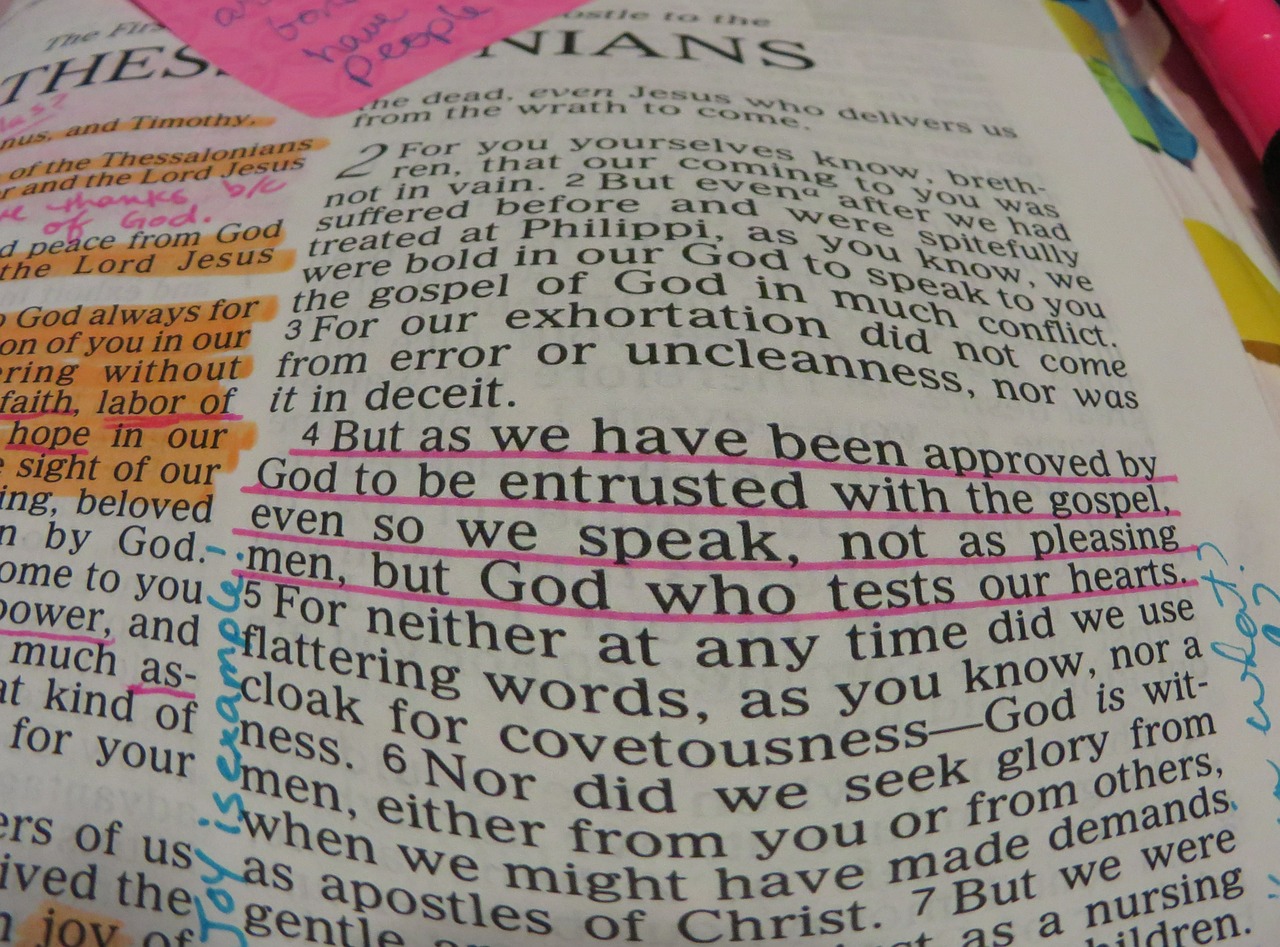 The Firs
ostle to the
THES
NIANS
bon
have
people
las?
nus, and Timothy,
of the Thessalonians
r and the Lord Jesus
ve thanks b/c
of God.
d peace from God
the Lord Jesus
o God always for
on of you in our
ering without
faith, labor of
hope in our
e sight of our
ing, beloved
n by God.
ome to you
power, and
much as-
at kind of
for your
ers of us
ived the
joy of
Joy is example
the dead, even Jesus who delivers us
from the wrath to come.
2 For you yourselves know, breth-
ren, that our coming to you was
not in vain. 2 But evenᵃ after we had
suffered before and were spitefully
treated at Philippi, as you know, we
were bold in our God to speak to you
the gospel of God in much conflict.
3 For our exhortation did not come
from error or uncleanness, nor was
it in deceit.
4 But as we have been approved by
God to be entrusted with the gospel,
even so we speak, not as pleasing
men, but God who tests our hearts.
5 For neither at any time did we use
flattering words, as you know, nor a
cloak for covetousness—God is wit-
ness. 6 Nor did we seek glory from
men, either from you or from others,
when we might have made demands
as apostles of Christ. 7 But we were
gentle
as a nursing
hildren.
what?